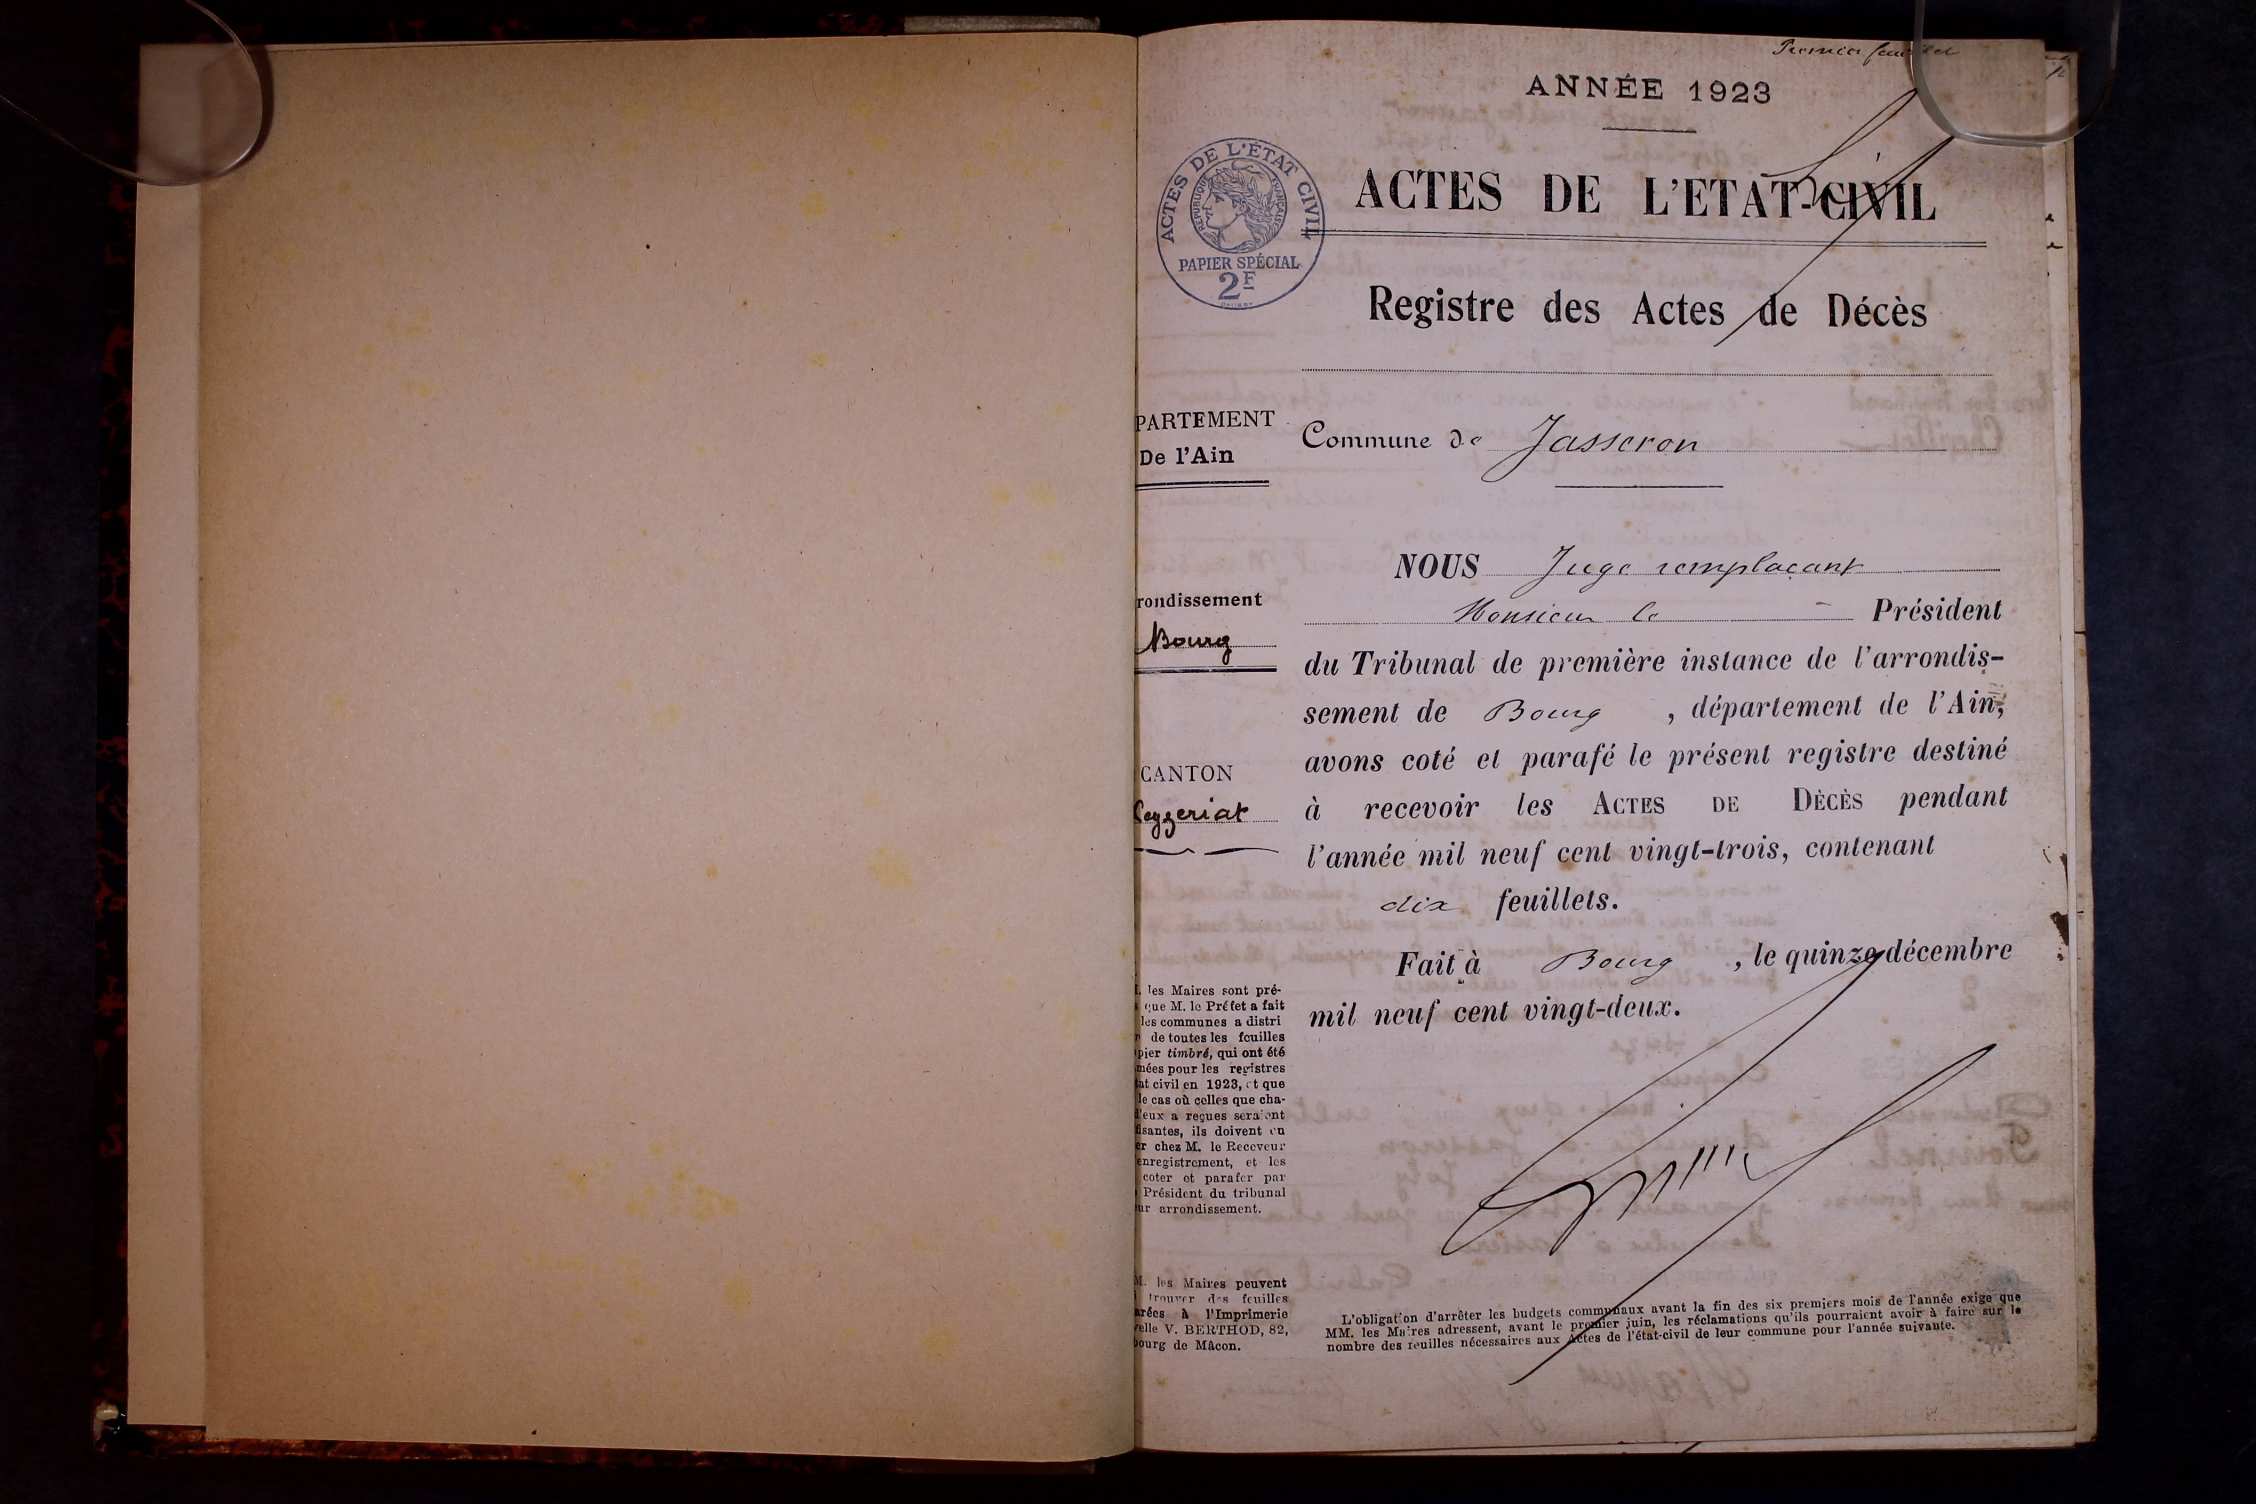 Premier feuillet
ANNÉE 1923
ACTES DE L'ÉTAT CIVIL
RÉPUBLIQUE FRANÇAISE
PAPIER SPÉCIAL
2F
ACTES DE L'ETAT-CIVIL
Registre des Actes de Décès
PARTEMENT
De l'Ain
Commune de Jasseron
rondissement
Bourg
CANTON
Ceyzeriat
NOUS Juge remplaçant
Monsieur le Président
du Tribunal de première instance de l'arrondis-
sement de Bourg, département de l'Ain,
avons coté et parafé le présent registre destiné
à recevoir les ACTES DE DÉCÈS pendant
l'année mil neuf cent vingt-trois, contenant
dix feuillets.
Fait à Bourg, le quinze décembre
mil neuf cent vingt-deux.
. les Maires sont pré-
que M. le Préfet a fait
les communes a distri
de toutes les feuilles
pier timbré, qui ont été
mées pour les registres
tat civil en 1923, et que
le cas où celles que cha-
d'eux a reçues seraient
fisantes, ils doivent en
er chez M. le Receveur
enregistrement, et les
coter et parafer par
Président du tribunal
ur arrondissement.
M. les Maires peuvent
trouver des feuilles
arées à l'Imprimerie
velle V. BERTHOD, 82,
bourg de Mâcon.
L'obligation d'arrêter les budgets communaux avant la fin des six premiers mois de l'année exige que
MM. les Maires adressent, avant le premier juin, les réclamations qu'ils pourraient avoir à faire sur le
nombre des feuilles nécessaires aux Actes de l'état-civil de leur commune pour l'année suivante.